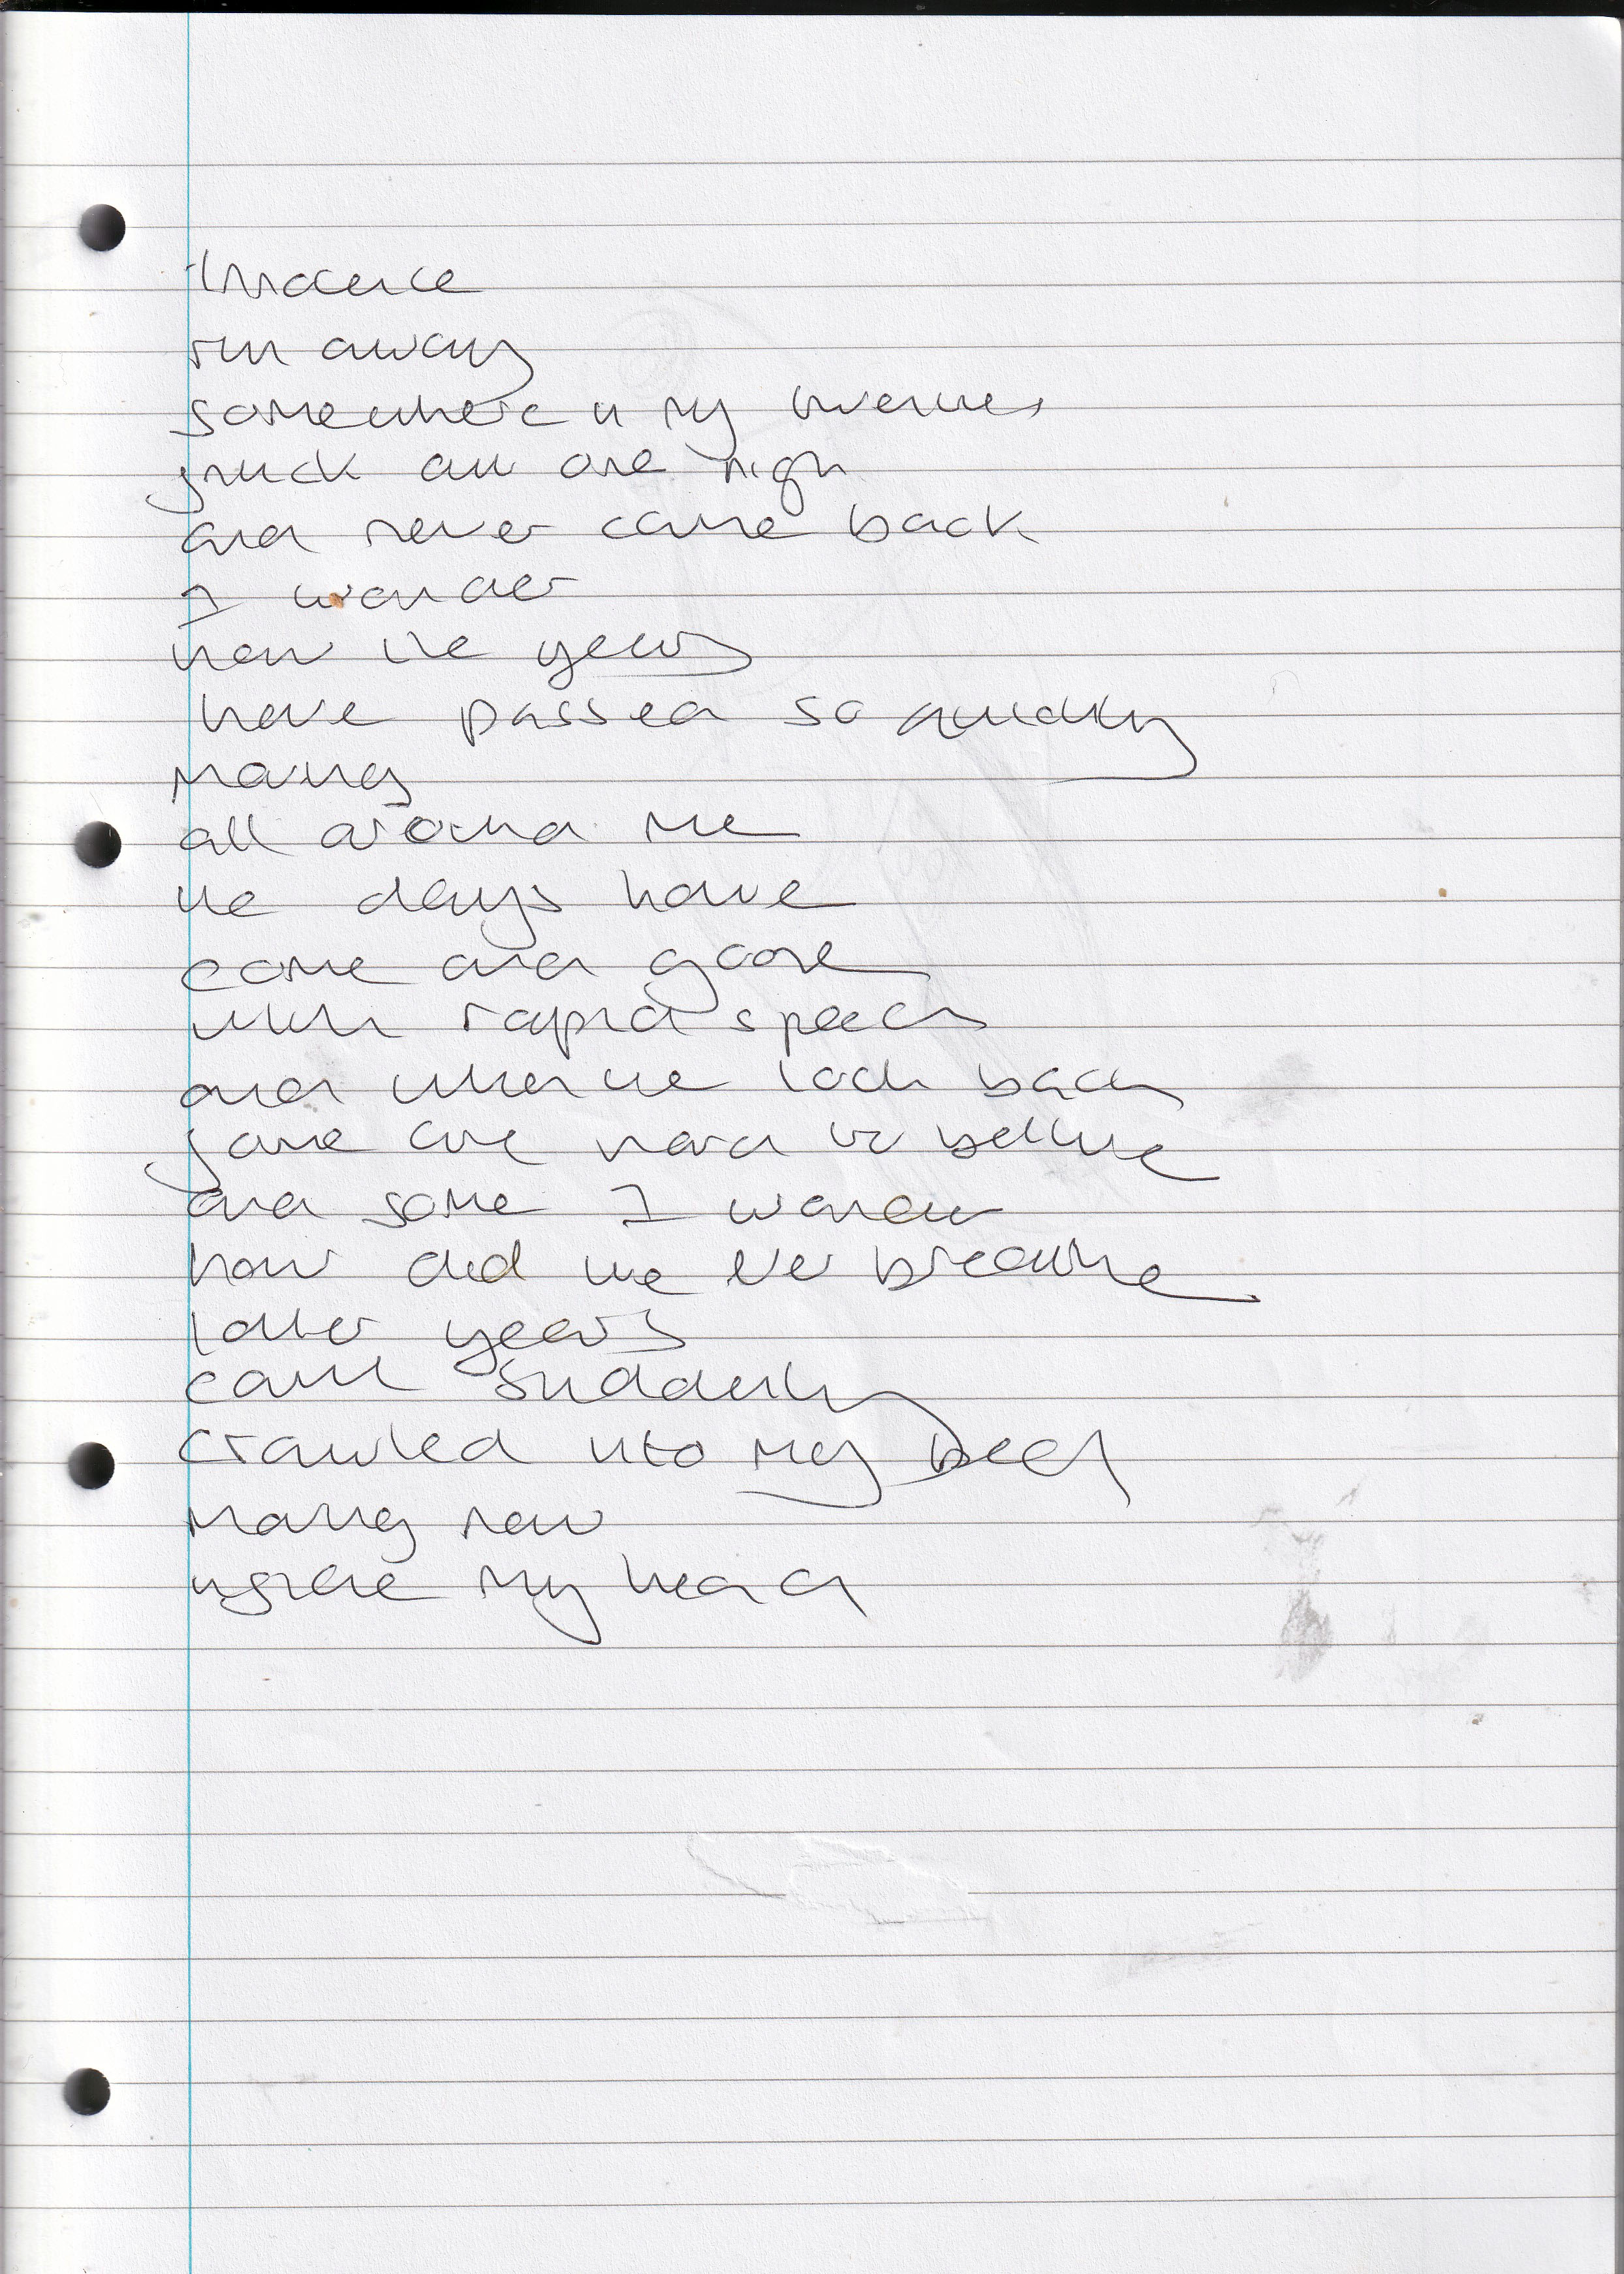 Innocence
run away
somewhere in my twenties
snuck out one nigh
and never came back
I wonder
how the years
have passed so quickly
racing
all around me
the days have
come and gone
with rapid speed
and when we look back
some are hard to believe
and some I wonder
how did we ever breathe
latter years
came suddenly
crawled into my bed
now
inside my head